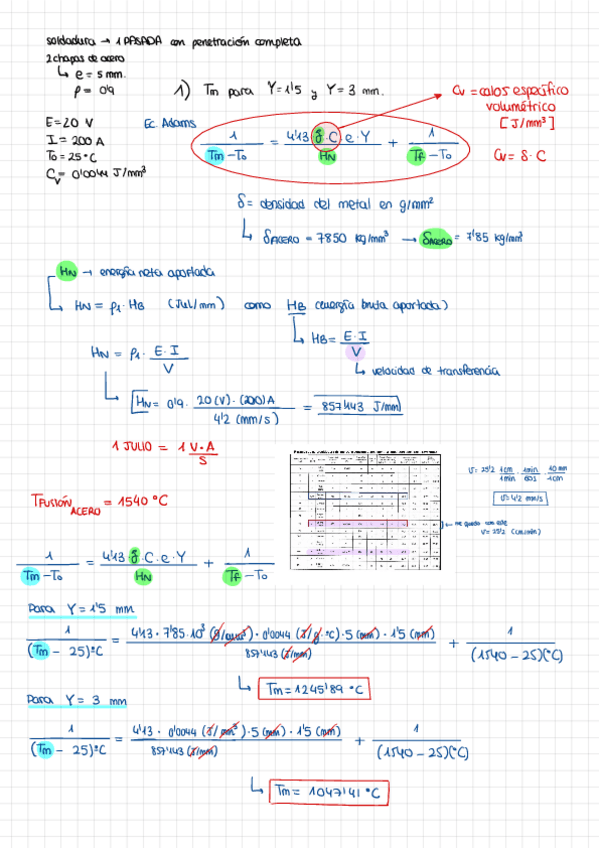 soldadura → 1 PASADA con penetración completa
2 chapas de acero
↳ e = 5 mm.
ρ = 0'9
1) Tm para Y=1'5 y Y = 3 mm.
Cv = calos específico
volumétrico
[J/mm³]
Cv = δ · C
E = 20 V
I = 200 A
T0 = 25 °C
Cv = 0'0044 J/mm³
Ec. Adams
1 / (Tm − To) = 4'13 δ C e · Y / HN + 1 / (Tf − To)
δ = densidad del metal en g/mm²
↳ δACERO = 7850 kg/mm³ → δACERO = 7'85 kg/mm³
HN → energía neta aportada
↳ HN = ρ1 · HB (Jul/mm) como HB (energía bruta aportada)
↳ HB = E · I / V
↳ velocidad de transferencia
HN = ρ1 · E · I / V
↳ HN = 0'9 · 20 (V) · (200) A / 4'2 (mm/s) = 857'143 J/mm
1 JULIO = 1 V · A / S
V = 25'2 1cm / 1min · 1min / 60s · 10mm / 1cm
V = 4'2 mm/s
← me quedo con este
V = 25'2 (cm/min)
TFUSIÓN ACERO = 1540 °C
1 / (Tm − To) = 4'13 δ · C · e · Y / HN + 1 / (Tf − To)
Para Y = 1'5 mm
1 / (Tm − 25) °C = 4'13 · 7'85 · 10³ (g/mm³) · 0'0044 (J/g · °C) · 5 (mm) · 1'5 (mm) / 857'143 (J/mm) + 1 / (1540 − 25)(°C)
↳ Tm = 1245'89 °C
Para Y = 3 mm
1 / (Tm − 25) °C = 4'13 · 0'0044 (J/mm³) · 5 (mm) · 1'5 (mm) / 857'143 (J/mm) + 1 / (1540 − 25)(°C)
↳ Tm = 1047'41 °C